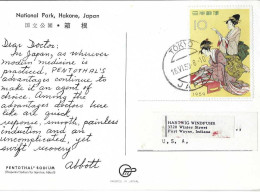 National Park, Hakone, Japan
国立公園・箱根
Dear Doctor:
In Japan, as wherever
modern medicine is
practiced, PENTOTHAL'S
advantages continue to
make it an agent of
choice. Among the
advantages doctors here
like are quick
response, smooth, painless
induction and an
uncomplicated, yet
swift recovery
Abbott
PENTOTHAL® SODIUM
TOKYO
JAPAN
日本郵便
10
1958
HARTWIG WINDFUHER
3320 Winter Street
Fort Wayne, Indiana
U. S. A.